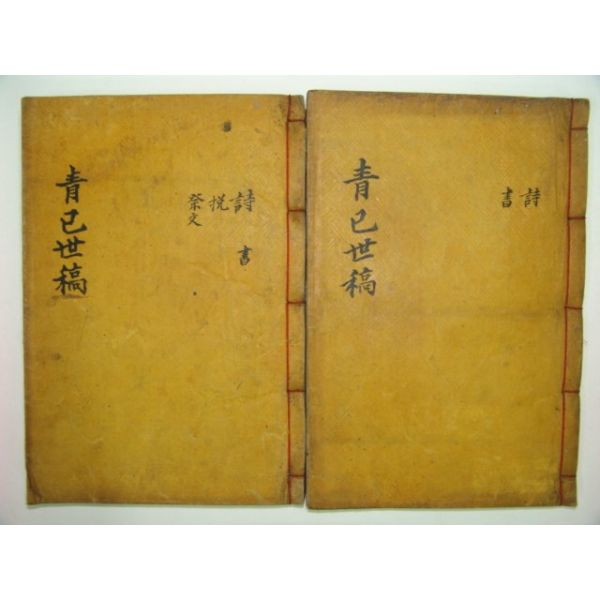 詩
書
青己世稿
詩 書
挽
祭文
青己世稿